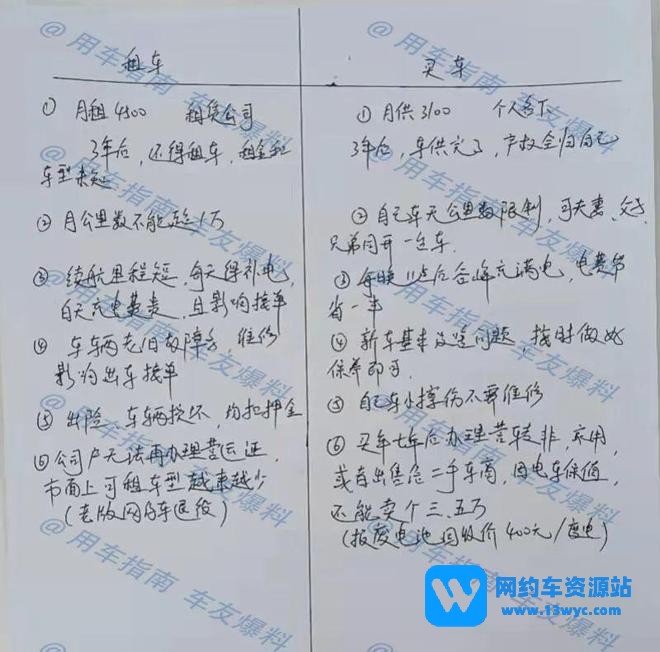 租车
① 月租4300 租赁公司
3年后,还得租车,租金和
车型未定
② 月公里数不能超1万
③ 续航里程短,每天得补电,
白天充电费贵,且影响接单
④ 车辆老旧故障多,维修
影响出车接单
⑤ 出险、车辆损坏,均扣押金
⑥ 公司户无法再办理营运证,
市面上可租车型越来越少
(老版网约车退役)
买车
① 月供3100 个人名下
3年后,车供完了,产权全归自己
② 自己车无公里数限制,可夫妻、父子、
兄弟同开一台车.
③ 每晚11点后谷峰充满电,电费节
省一半
④ 新车基本没啥问题,按时做好
保养即可.
⑤ 自己车小擦伤不需维修
⑥ 买车七年后办理营转非,家用,
或者出售给二手车商,因电车保值,
还能卖个三、五万
(报废电池回收价400元/度电)
@用车指南 车友爆料
网约车资源站
www.13wyc.com